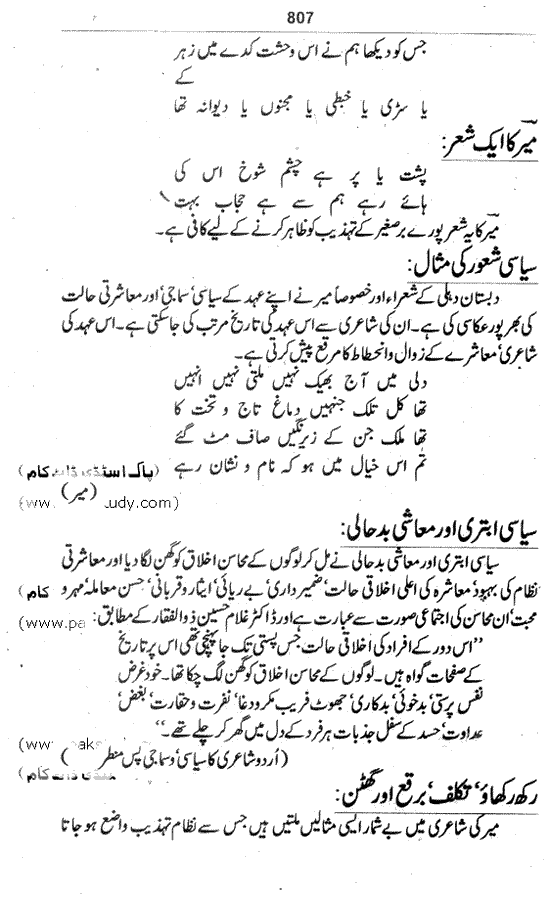 807
جس کو دیکھا ہم نے اس وحشت کدے میں زہر
کے
یا سڑی یا خبطی یا مجنوں یا دیوانہ تھا
میر کا ایک شعر:
پشت یا پر ہے چشم شوخ اس کی
ہائے رہے ہم سے ہے حجاب بہت
میر کا یہ شعر پورے برصغیر کے تہذیب کو ظاہر کرنے کے لیے کافی ہے۔
سیاسی شعور کی مثال:
دبستان دہلی کے شعراء اور خصوصاً میر نے اپنے عہد کے سیاسی‘ سماجی‘ اور معاشرتی حالت
کی بھرپور عکاسی کی ہے۔ ان کی شاعری سے اس عہد کی تاریخ مرتب کی جا سکتی ہے۔ اس عہد کی
شاعری‘ معاشرے کے زوال و انحطاط کا مرقع پیش کرتی ہے۔
دلی میں آج بھیک نہیں ملتی نہیں انہیں
تھا کل تلک جنہیں دماغ تاج و تخت کا
تھا ملک جن کے زیرنگیں صاف مٹ گئے
تم اس خیال میں ہو کہ نام و نشان رہے (پاک اسٹڈی ڈاٹ کام)
(میر) (www. udy.com)
سیاسی ابتری اور معاشی بدحالی:
سیاسی ابتری اور معاشی بدحالی نے مل کر لوگوں کے محاسن اخلاق کو گھن لگا دیا اور معاشرتی
نظام کی بہبود‘ معاشرہ کی اعلی اخلاقی حالت‘ ضمیر داری‘ بے ریائی‘ ایثار و قربانی‘ حسن معاملہ‘ مہر و کام)
محبت‘ ان محاسن کی اجتماعی صورت سے عبارت ہے اور ڈاکٹر غلام حسین ذوالفقار کے مطابق: (www.pa
”اس دور کے افراد کی اخلاقی حالت جس پستی تک جا پہنچی تھی اس پر تاریخ
کے صفحات گواہ ہیں۔ لوگوں کے محاسن اخلاق کو گھن لگ چکا تھا۔ خود غرض
نفس پرستی‘ بدخوئی‘ بدکاری‘ جھوٹ فریب مکر و دغا‘ نفرت و حقارت‘ بغض‘
عداوت‘ حسد کے سفل جذبات ہر فرد کے دل میں گھر کر چلے تھے۔“
(اُردو شاعری کا سیاسی‘ و سماجی پس منظر) (www. aks
ڈاٹ کام)
رکھ رکھاؤ‘ تکلف‘ برقع اور گھٹن:
میر کی شاعری میں بے شمار ایسی مثالیں ملتیں ہیں جس سے نظام تہذیب واضع ہو جاتا